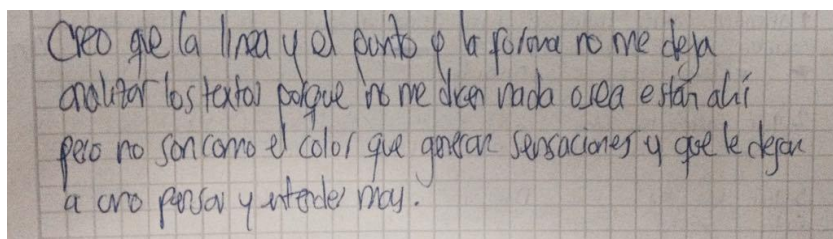 Creo que la linea y el punto y la forma no me deja
analizar los textos porque no me dicen nada osea están ahí
pero no son como el color que generan sensaciones y que le dejan
a uno pensar y entender mas.